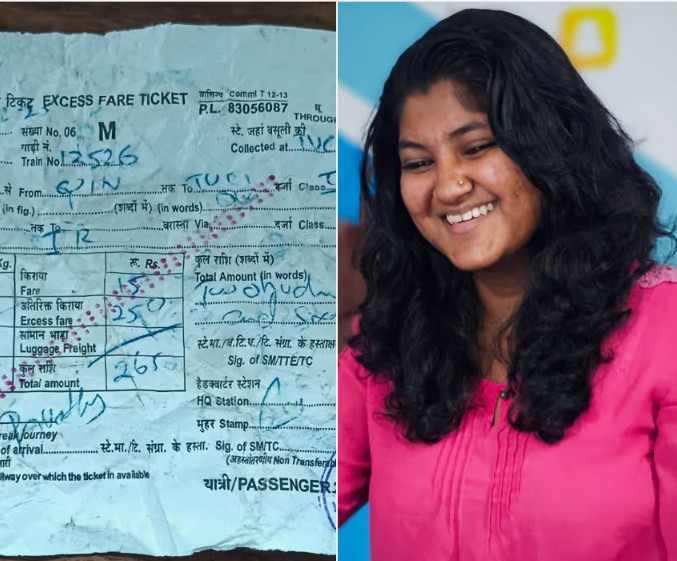 टिकट EXCESS FARE TICKET
वाणिज्य Comml T 12-13
P.L. 83056087
THROUGH
संख्या No. 06 M
गाड़ी नं.
Train No. 12526
स्टे. जहां वसूली की
Collected at
से From तक To दर्जा Class
(in fig.) 1 (शब्दों में) (in words)
तक To वरास्ता Via दर्जा Class
Kg. रू. Rs.
किराया
Fare 15
अतिरिक्त किराया
Excess fare 250
सामान भाड़ा
Luggage Freight
कुल राशि
Total amount 265
कुल राशि (शब्दों में)
Total Amount (in words)
स्टे.मा./चं.टि.प./टि. संग्रा. के हस्ताक्ष
Sig. of SM/TTE/TC
हैडक्वार्टर स्टेशन
HQ Station
मुहर Stamp
reak journey
of arrival स्टे.मा./टि. संग्रा. के हस्ता. Sig. of SM/TC
(अहस्तांतरणीय Non Transfera
ilway over which the ticket in available
यात्री/PASSENGER